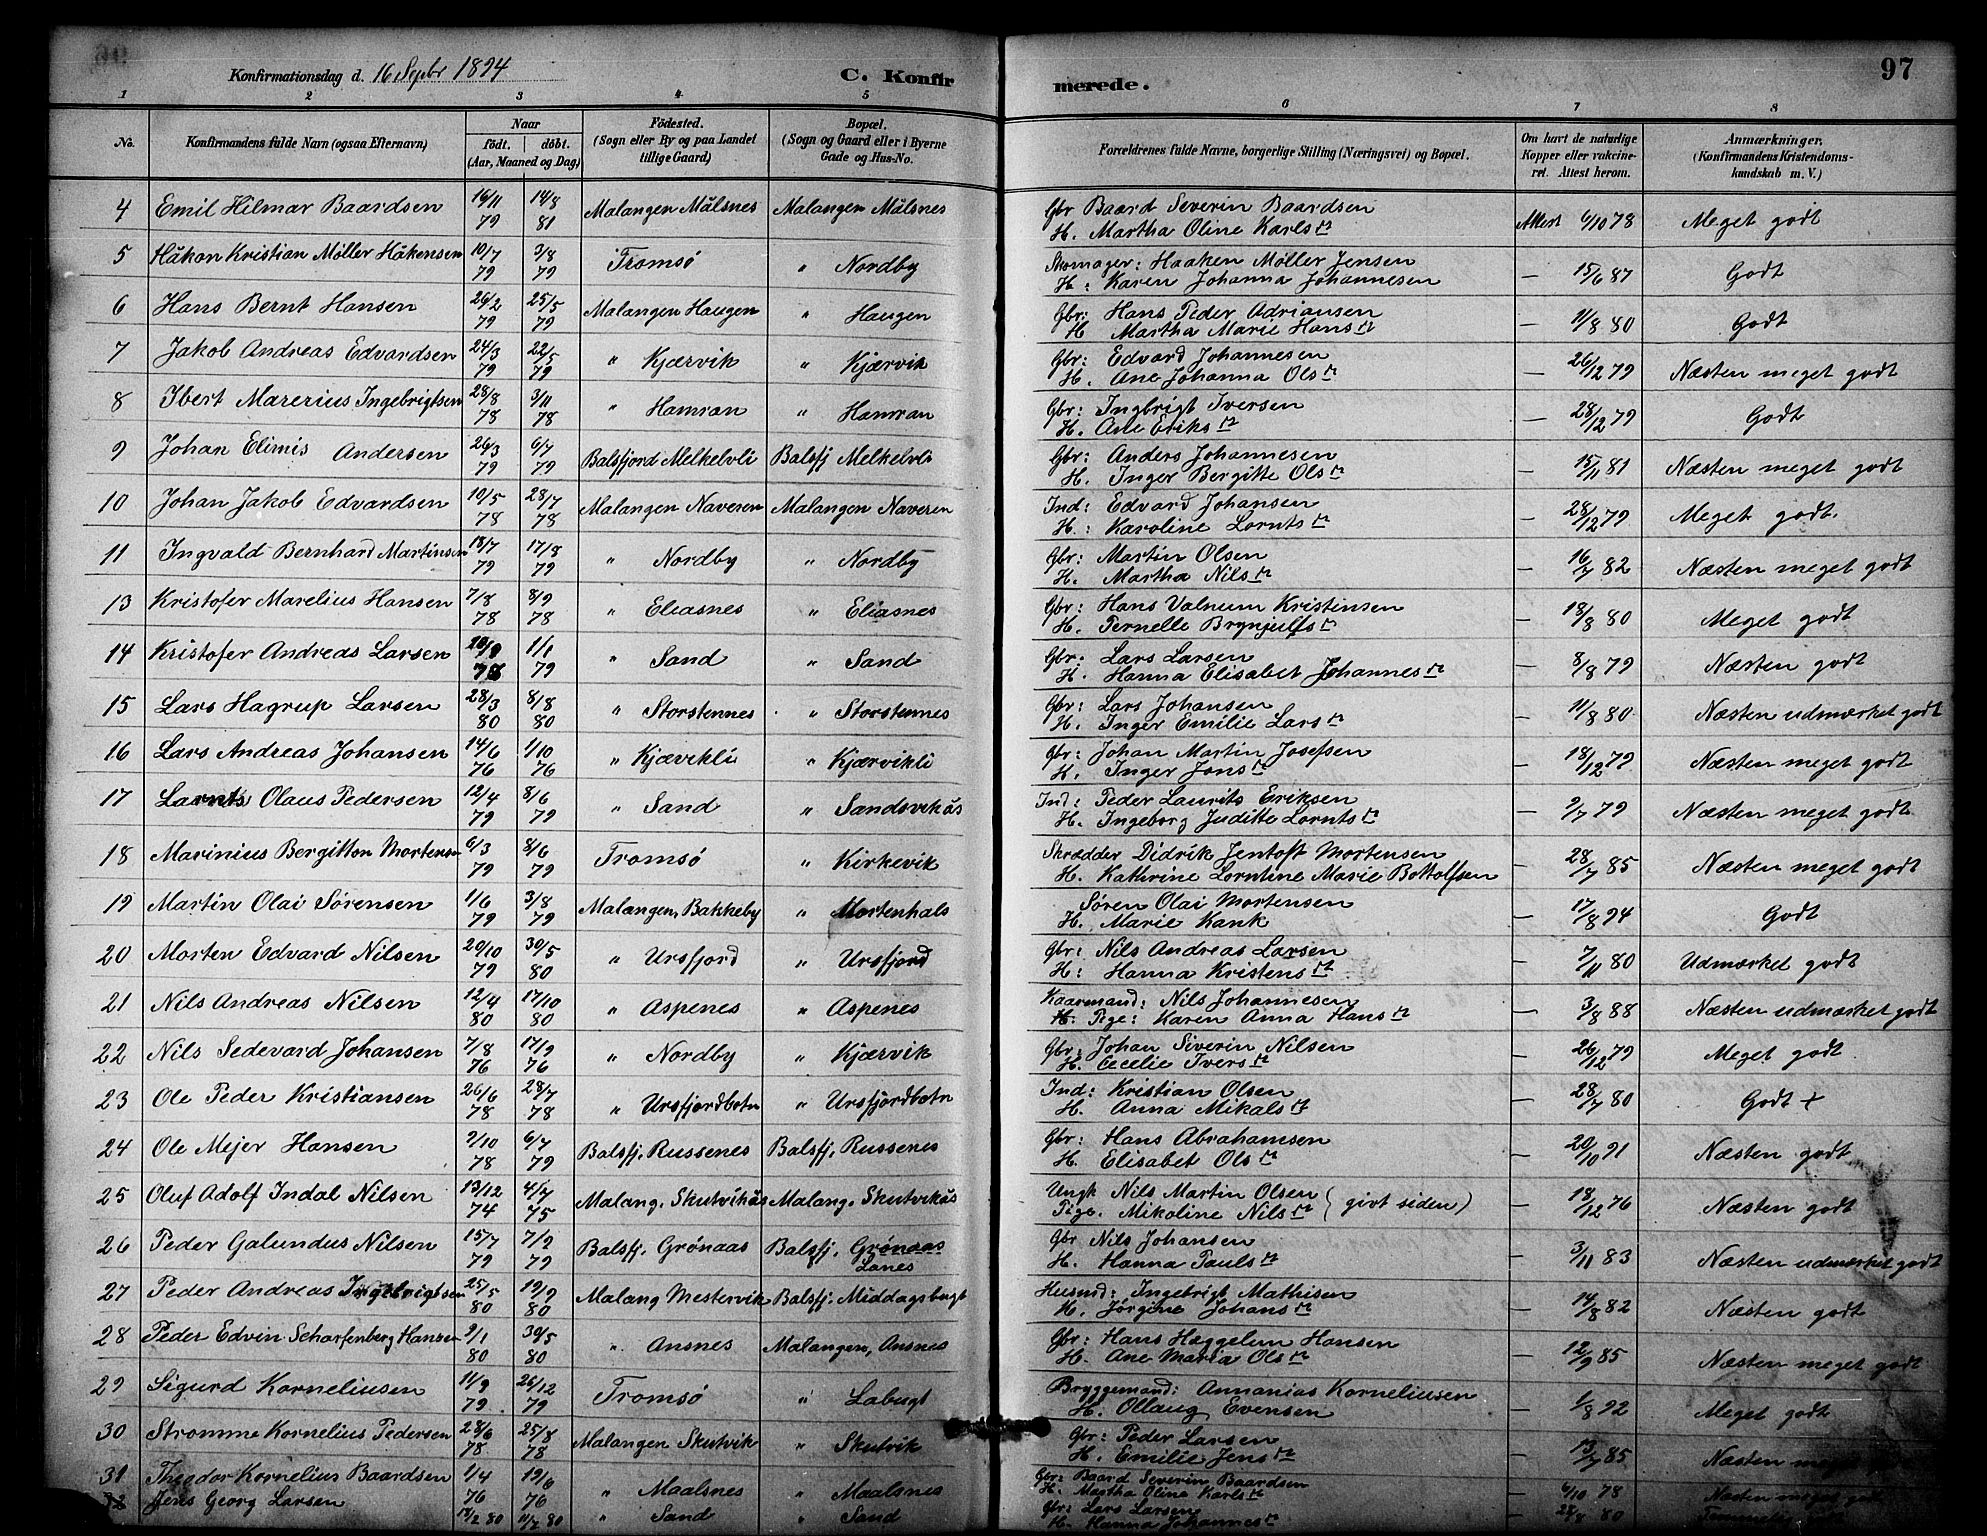 Konfirmationsdag d. 16 Septbr 1894
C. Konfirmerede.
97
1 2 3 4 5 6 7 8
No. Konfirmandens fulde Navn (ogsaa Efternavn) Naar födt. döbt. (Aar, Maaned og Dag) Födested. (Sogn eller By og paa Landet tillige Gaard) Bopæl. (Sogn og Gaard eller i Byerne Gade og Hus-No. Forældrenes fulde Navne, borgerlige Stilling (Næringsvei) og Bopæl. Om havt de naturlige Kopper eller vakcineret. Attest herom. Anmærkninger. (Konfirmandens Kristendomskundskab m. V.)
4 Emil Hilmar Baardsen 16/11 79 14/8 81 Malangen Målsnes Malangen Målsnes Gbr Baard Severin Baardsen H. Martha Oline Karlsdr Attest 6/10 78 Meget godt
5 Håkon Kristian Möller Håkensen 10/7 79 3/8 79 Tromsö " Nordby Skomager: Haaken Møller Jensen H: Karen Johanna Johannesen — 15/6 87 Godt
6 Hans Bernt Hansen 26/2 79 25/5 79 Malangen Haugen " Haugen Gbr: Hans Peder Adriansen H Martha Marie Hansdr — 9/8 80 Godt
7 Jakob Andreas Edvardsen 24/3 79 22/5 79 " Kjærvik " Kjærvik Gbr: Edvard Johannesen H. Ane Johanna Olsdr — 26/12 79 Næsten meget godt
8 Ibert Marerius Ingebrigtsen 28/8 78 3/11 78 " Hamran " Hamran Gbr: Ingbrigt Iversen H. Ane Eriksdr — 28/12 79 Godt
9 Johan Elimis Andersen 26/3 79 6/7 79 Balsfjord Melkelvli Balsfj Melkelvli Gbr: Anders Johannesen H. Inger Bergitte Olsdr — 15/11 81 Næsten meget godt
10 Johan Jakob Edvardsen 10/5 78 28/7 78 Malangen Naveren Malangen Naveren Ind: Edvard Johansen H: Karoline Lorntsdr — 28/12 79 Meget godt.
11 Ingvald Bernhard Martinsen 18/7 79 17/8 79 " Nordby " Nordby Gbr: Martin Olsen H. Martha Nilsdr — 16/7 82 Næsten meget godt
13 Kristofer Marelius Hansen 7/8 78 8/9 78 " Eliasnes " Eliasnes Gbr: Hans Valnum Kristensen H. Pernelle Brynjulfsdr — 18/8 80 Meget godt
14 Kristofer Andreas Larsen 78 1/1 79 " Sand " Sand Gbr: Lars Larsen H. Hanna Elisabet Johannesdr — 8/8 79 Næsten godt
15 Lars Hagrup Larsen 28/3 80 8/8 80 " Storstennes " Storstennes Gbr: Lars Johansen H. Inger Emilie Larsdr — 11/8 80 Næsten udmærket godt
16 Lars Andreas Johansen 14/6 76 1/10 76 " Kjævikli " Kjærvikli Gbr: Johan Martin Josefsen H. Inger Jonsdr — 18/12 79 Næsten meget godt
17 Larnts Olaus Pedersen 12/4 79 8/6 79 " Sand " Sandsvikås Ind: Peder Laurits Eriksen H. Ingeborg Juditte Lorntsdr — 9/7 79 Næsten meget godt
18 Marinius Bergitton Mortensen 6/3 79 8/6 79 Tromsö " Kirkevik Skrædder Didrik Jentoft Mortensen H. Kathrine Lorntine Marie Bottolfsen — 28/7 85 Næsten meget godt
19 Martin Olai Sörensen 1/6 79 3/8 79 Malangen, Bakkeby " Mortenhals Sören Olai Mortensen H. Marie Kank — 17/8 94 Godt
20 Morten Edvard Nilsen 20/10 79 30/5 80 " Ursfjord " Ursfjord Gbr: Nils Andreas Larsen H: Hanna Kristensdr — 7/11 80 Udmærket godt
21 Nils Andreas Nilsen 12/4 80 17/10 80 " Aspenes " Aspenes Kaarmand: Nils Johannesen H. Pige: Karen Anna Hansdr — 3/8 88 Næsten udmærket godt
22 Nils Sedevard Johansen 7/8 76 17/9 76 " Nordby " Kjærvik Gbr: Johan Siverin Nilsen H. Cecelie Iversdr — 26/12 79 Meget godt
23 Ole Peder Kristiansen 26/6 78 28/7 78 " Ursfjordbotn " Ursfjordbotn Ind: Kristian Olsen H. Anna Mikalsdr — 28/7 80 Godt +
24 Ole Mejer Hansen 9/10 78 6/7 79 Balsfj, Russenes Balsfj, Russenes Gbr: Hans Abrahamsen H. Elisabet Olsdr — 20/10 91 Næsten godt
25 Oluf Adolf Indal Nilsen 13/12 74 4/7 75 Malang, Skutvikås Malang, Skutvikås Ungk Nils Martin Olsen Pige. Mikoline Nilsdr (givt siden) — 18/12 76 Næsten godt
26 Peder Galundus Nilsen 15/7 79 7/9 79 Balsfj, Grönaas Balsfj, Grönaas Lanes Gbr Nils Johansen H. Hanna Paulsdr — 3/11 83 Næsten udmærket godt
27 Peder Andreas Ingebrigtsen 25/5 80 19/9 80 Malang Mestervik Balsfj. Middagsbugt Husmd: Ingebrigt Mathisen H. Jörgine Johansdr — 14/8 82 Næsten godt
28 Peder Edvin Scharfenberg Hansen 9/1 80 30/5 80 " Ansnes Malangen, Ansnes Gbr: Hans Hæggelun Hansen H. Ane Maria Olsdr — 12/9 85 Næsten meget godt
29 Sigurd Korneliusen 11/9 79 26/12 79 Tromsö " Labugt Bryggemand: Annanias Korneliusen H. Ollaug Evensen — 1/8 92 Meget godt
30 Stromme Kornelius Pedersen 28/6 78 25/8 78 Malangen Skutvik " Skutvik Gbr: Peder Larsen H. Emilie Jensdr — 13/7 85 Næsten meget godt
31 Theodor Kornelius Baardsen 1/4 76 19/6 76 " Maalsnes " Maalsnes Gbr: Baard Severin Baardsen H. Martha Oline Karlsdr — 6/10 78 Næsten meget godt
32 Jens Georg Larsen 17/2 80 11/7 80 " Sand " Sand Gbr: Lars Larsen H. Hanna Johannesdr — 28/8 80